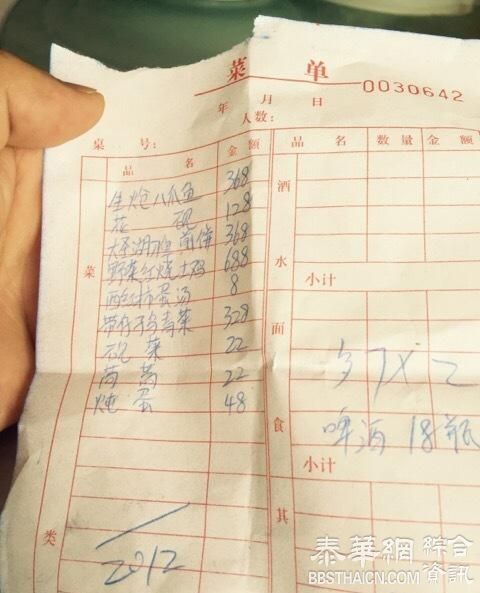 菜 单
0030642
年 月 日
桌 号: 人数:
品 名 金 额
生炝八爪鱼 368
花 砚 128
煎饼 368
野菜红烧土鸡 688
西红柿蛋汤 8
青菜 328
菜 22
茼蒿 22
炖蛋 48
2012
菜 类
品 名 数量 金 额
酒 水
小计
面 食
X 2
啤酒 18瓶
小计
其
泰華網 綜合資訊
BBSTHAICN.COM